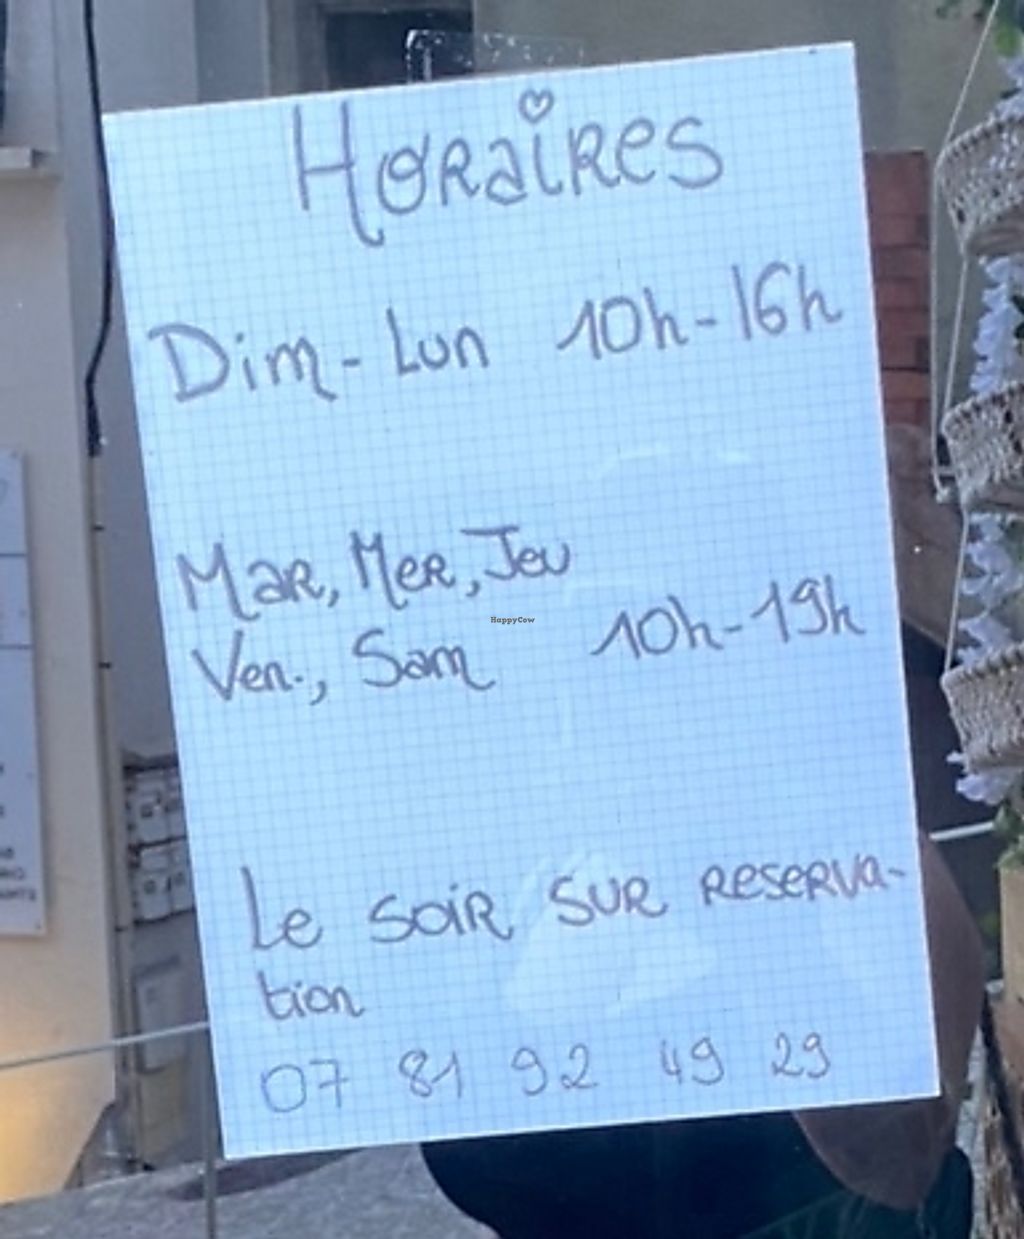 Horaires
Dim - Lun 10h - 16h
Mar, Mer, Jeu
Ven., Sam 10h - 19h
Le soir sur reserva-
tion
07 81 92 49 29
HappyCow